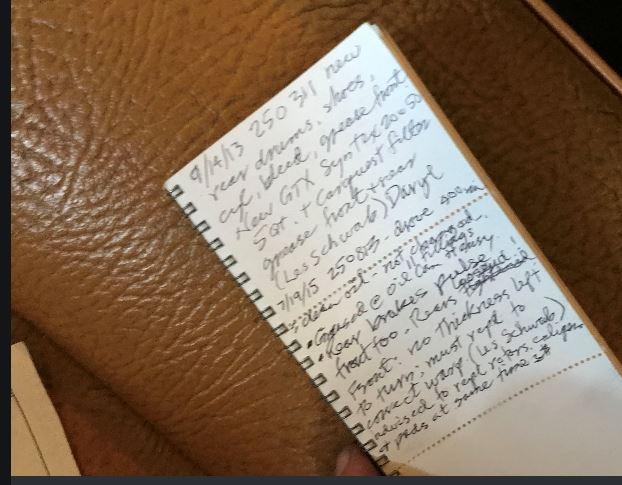 9/14/13 250 311 new
rear drums, shoes,
cyl, bleed, grease front.
New GTX Syntex 20-50
5 qt. + Carquest filter
grease front + rear
(Les Schwab) Daryl
7/19/15 250813 - drove
oil - not changed,
@ Oil Can fittings
• Rear brakes pulse,
front too. Rears
Front. no thickness left
to turn; must repl to
correct warp. (Les Schwab)
advised to repl rotors,
+ pads at same time